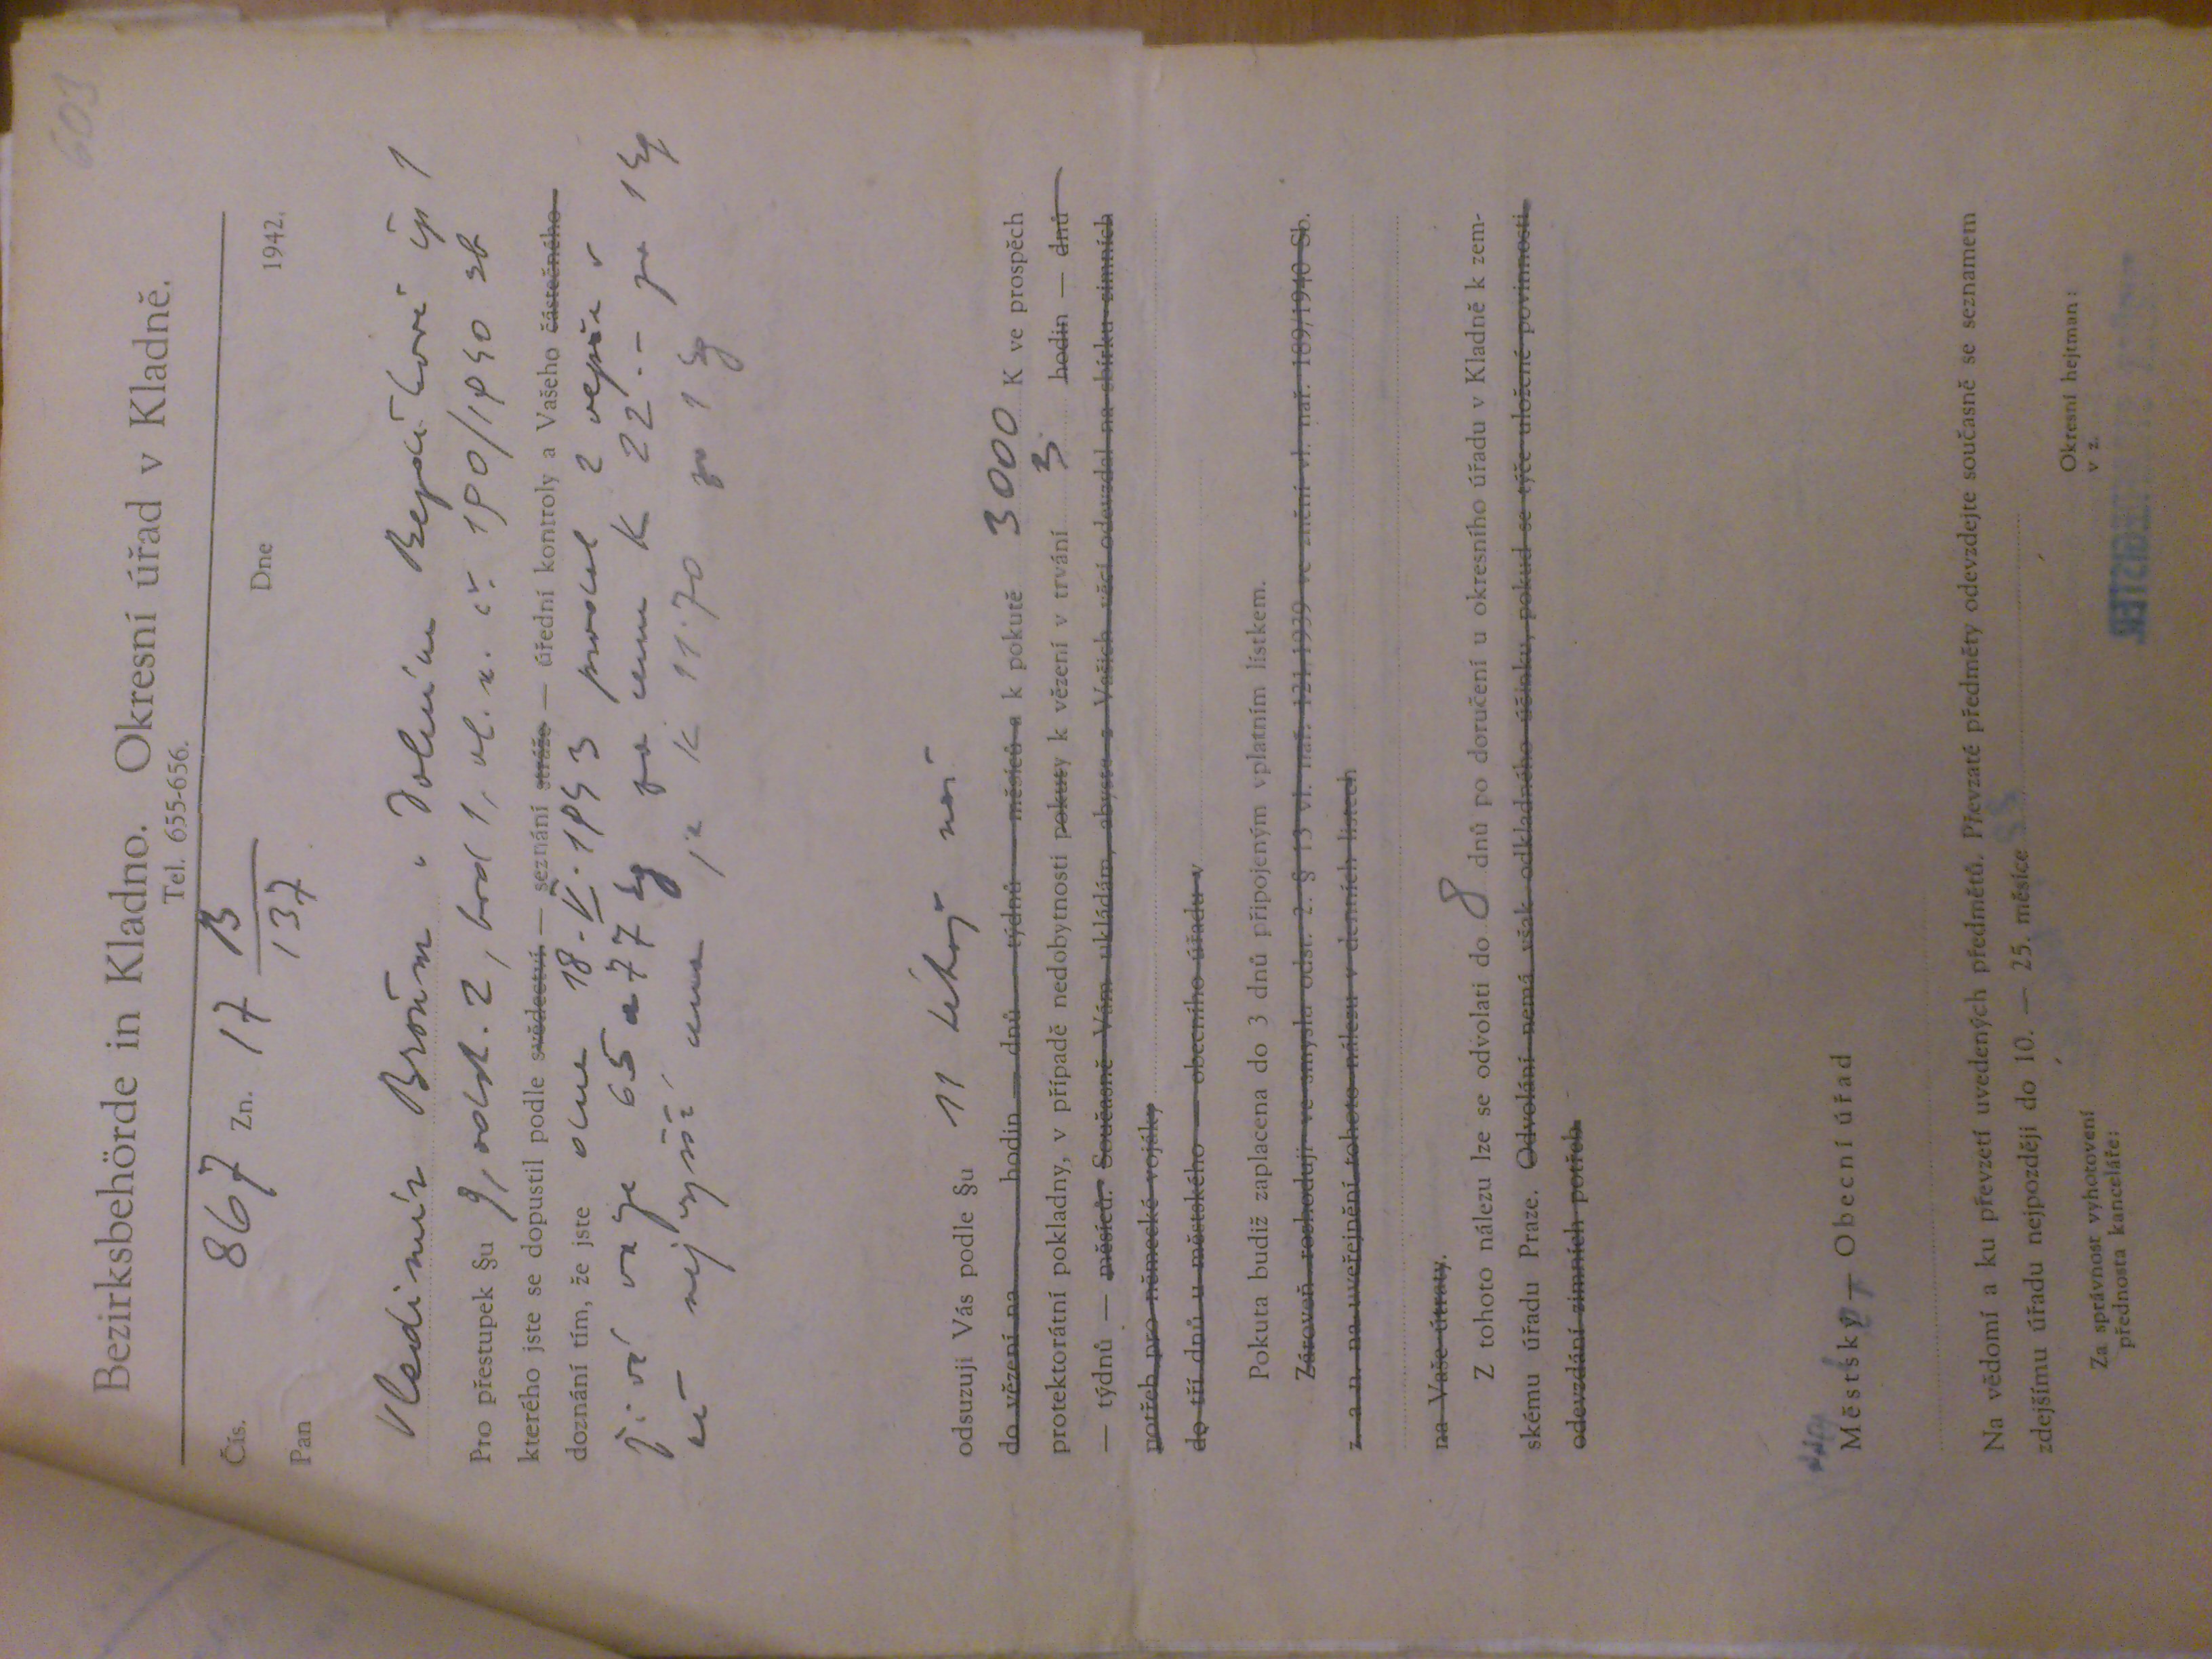 603
Bezirksbehörde in Kladno. Okresní úřad v Kladně.
Tel. 655-656.
Čís. 867 Zn. 17 B/137 Dne 1942.
Pan
Vladimír v Dolním čp 1
Pro přestupek §u 9, odst. 2, bod 1, vl. n. č. 190/1940 sb
kterého jste se dopustil podle svědectví — seznání stráže — úřední kontroly a Vašeho částečného
doznání tím, že jste dne 18. V. 1943 prodal 2 vepře v
živé váze 65 a 77 kg za cenu K 22.-- za 1 kg
nejvyšší cena je K 11.70 za 1 kg
odsuzuji Vás podle §u 11 téhož nař
do vězení na hodin — dnů — týdnů — měsíců a k pokutě 3000 K ve prospěch
protektorátní pokladny, v případě nedobytnosti pokuty k vězení v trvání 3 hodin — dnů
— týdnů — měsíců. Současně Vám ukládám, abyste z Vašich věcí odevzdal na sbírku zimních
potřeb pro německé vojáky
do tří dnů u městského — obecního úřadu v
Pokuta budiž zaplacena do 3 dnů připojeným vplatním lístkem.
Zároveň rozhoduji ve smyslu odst. 2. § 13 vl. nař. 121/1939 ve znění vl. nař. 189/1940 Sb.
z. a n. na uveřejnění tohoto nálezu v denních listech
na Vaše útraty.
Z tohoto nálezu lze se odvolati do 8 dnů po doručení u okresního úřadu v Kladně k zem-
skému úřadu Praze. Odvolání nemá však odkladného účinku, pokud se týče uložené povinnosti
odevzdání zimních potřeb.
Městský — Obecní úřad
Na vědomí a ku převzetí uvedených předmětů. Převzaté předměty odevzdejte současně se seznamem
zdejšímu úřadu nejpozději do 10. — 25. měsíce
Okresní hejtman:
v z.
Za správnost vyhotovení
přednosta kanceláře: